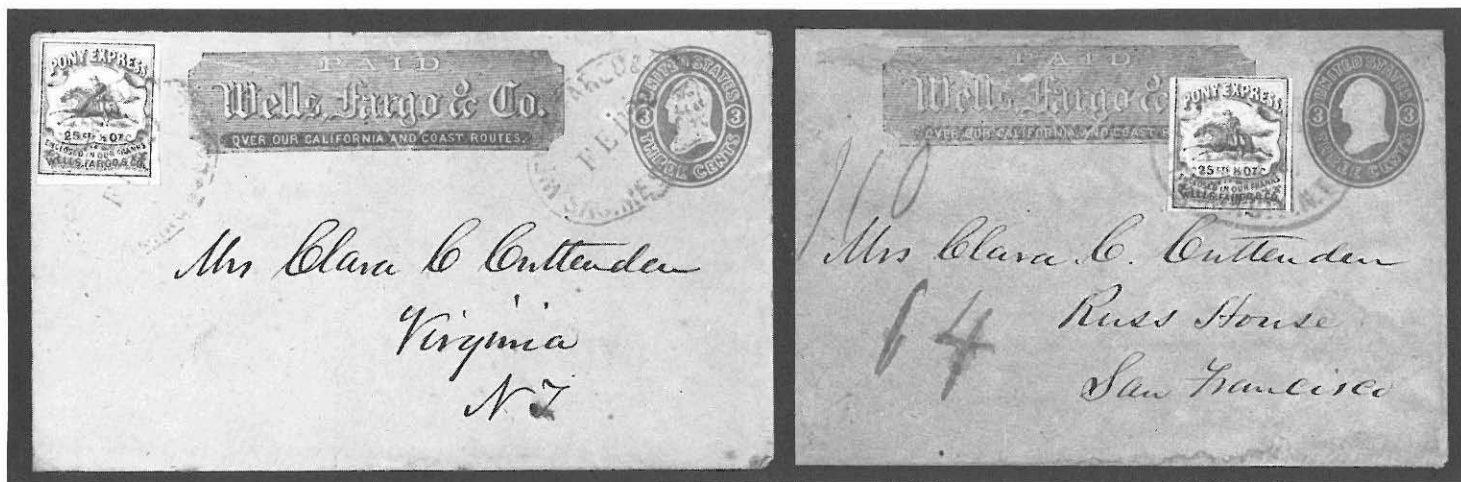 PONY EXPRESS
25 CTS ½ OZ.
ENCLOSED IN OUR FRANKS
WELLS, FARGO & CO.
PAID
Wells, Fargo & Co.
OVER OUR CALIFORNIA AND COAST ROUTES.
UNITED STATES
3 3
THREE CENTS
Mrs Clara C Cuttenden
Virginia
N T
PAID
Wells, Fargo &
OVER OUR CALIFORNIA AND COAST
PONY EXPRESS
25 CTS ½ OZ.
ENCLOSED IN OUR FRANKS
WELLS, FARGO & CO.
UNITED STATES
3 3
THREE CENTS
Mrs Clara C. Cuttenden
Russ House
San Francisco